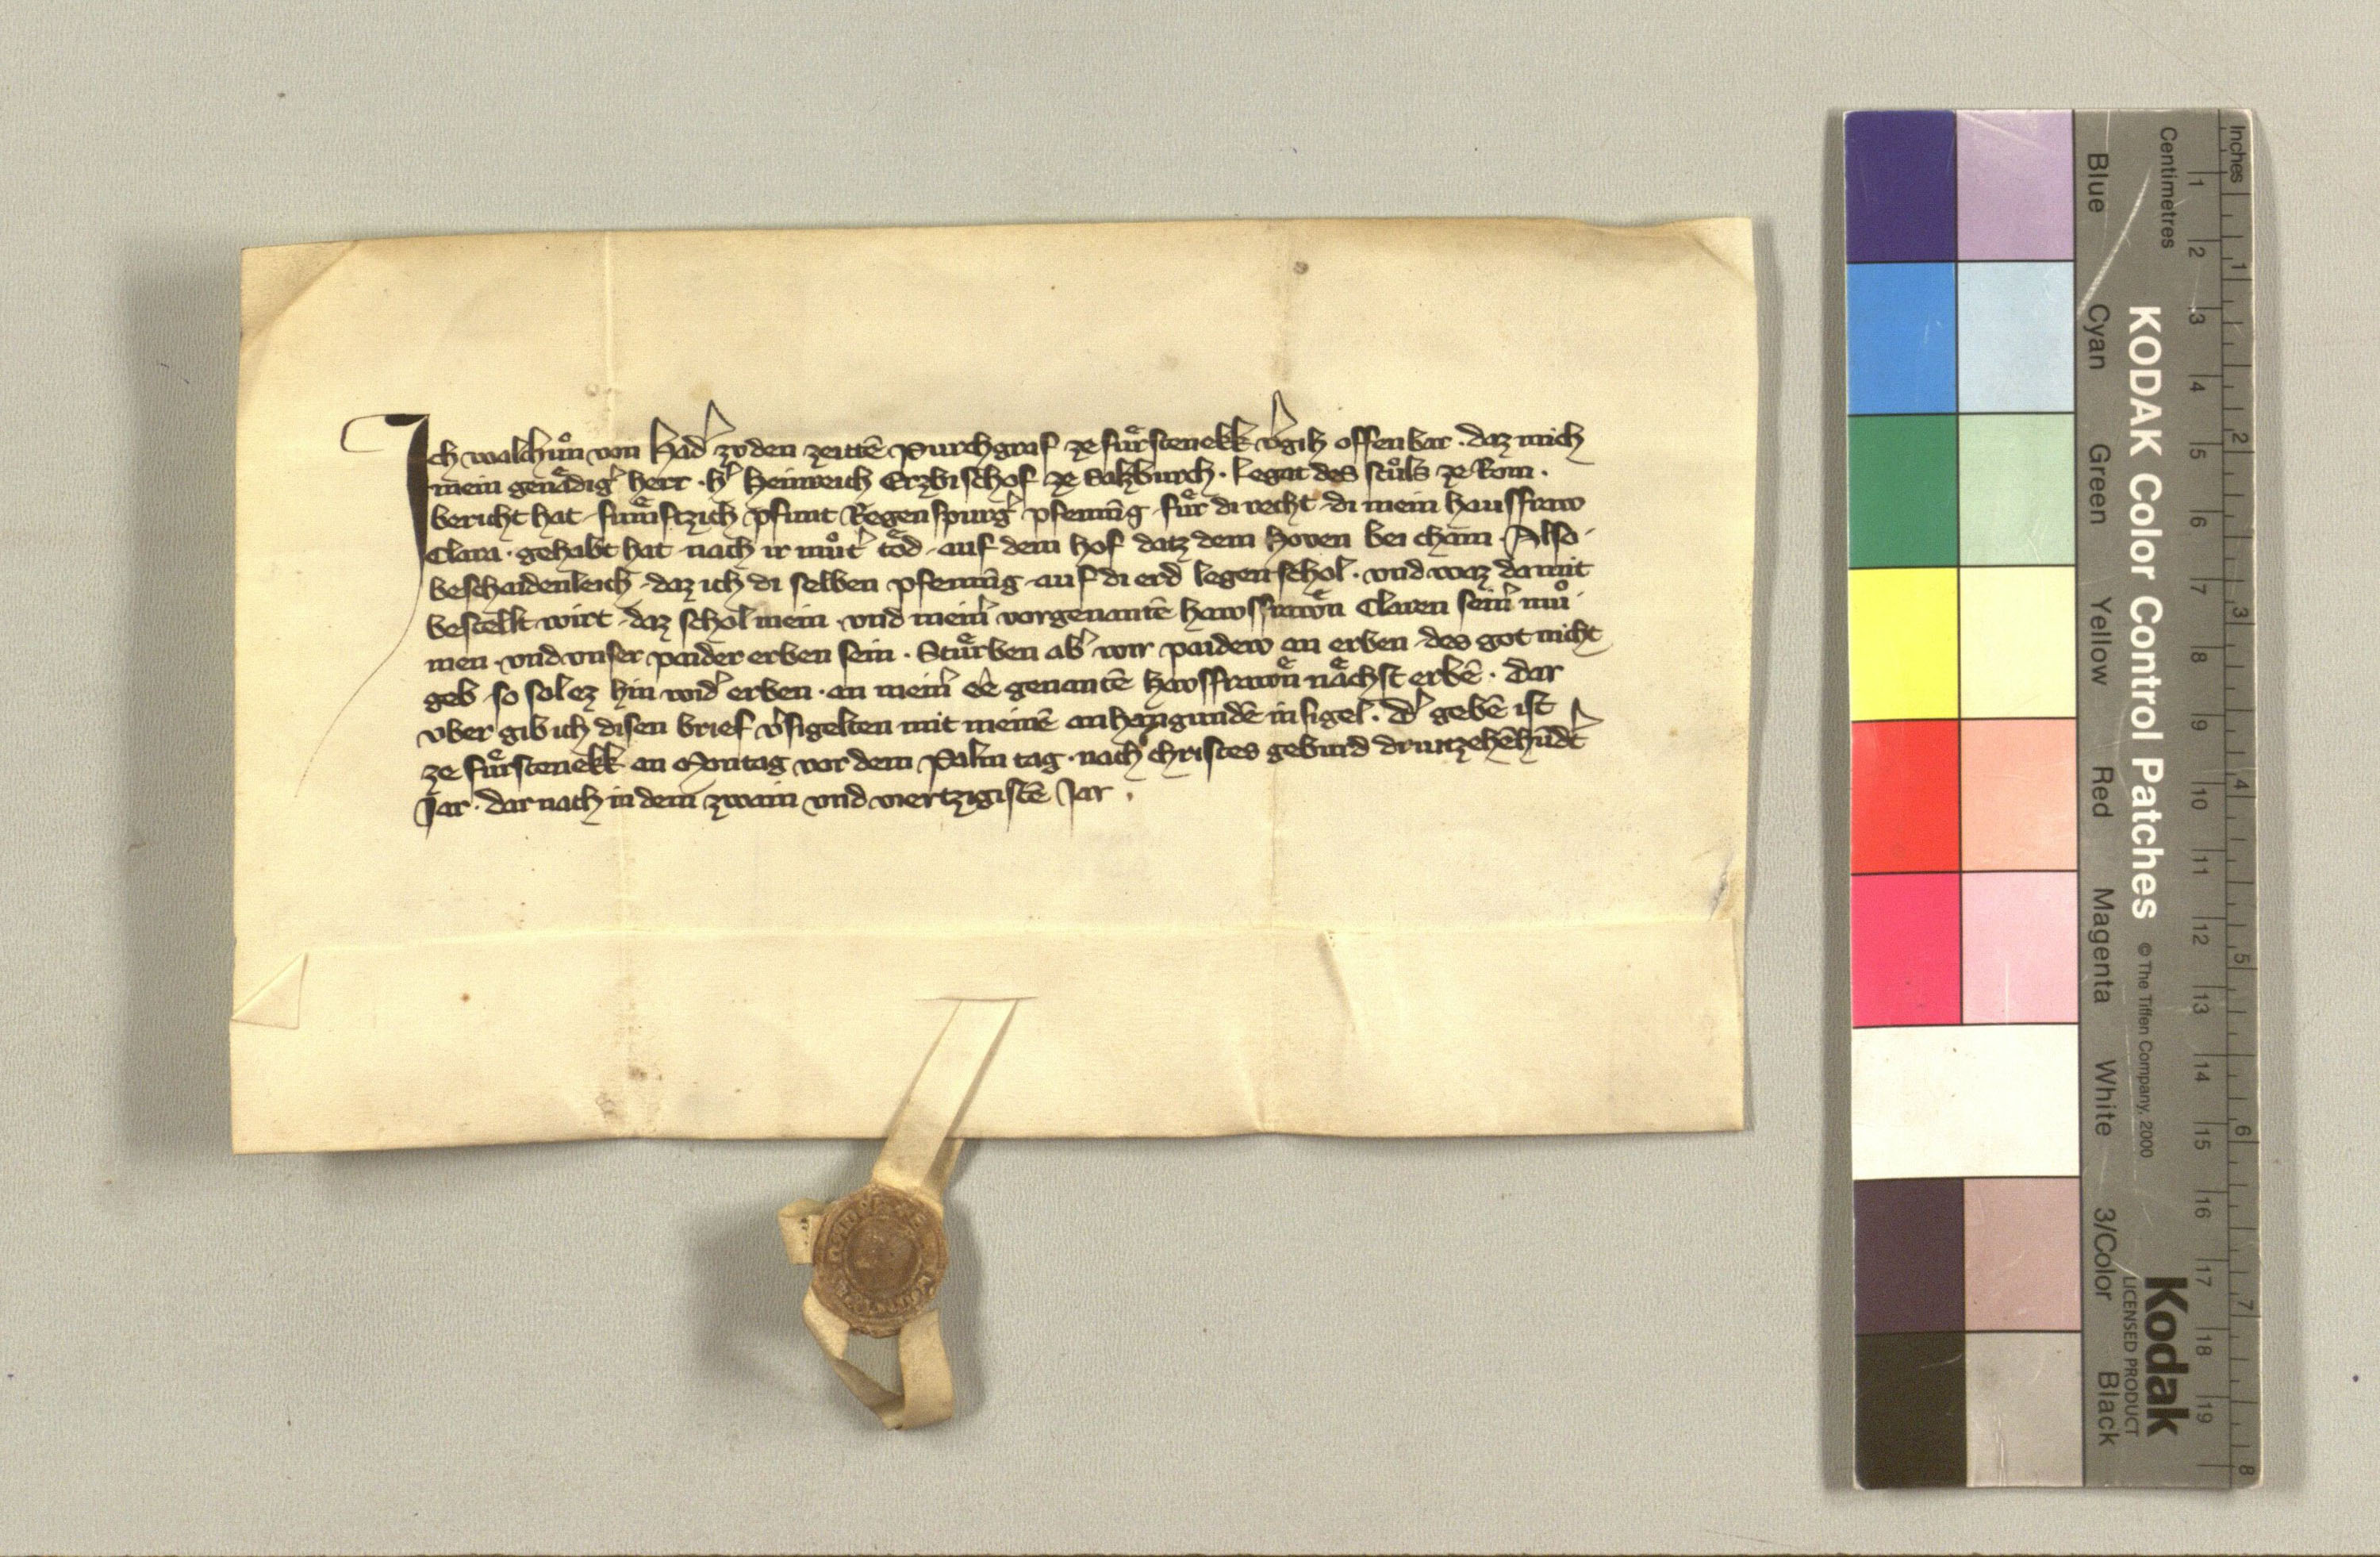 Ich walchůn von Had̉ zo den zeittē Purchgraf ze fuͤrstenekk v̉gih offenbar · daz mich
mein genaͤdig̉ herr · h̉ Heinreich Erzbischof ze Salzburch · Legat des stůls ze Rom ·
bericht hat · fuͤmftzich pfunt Regenspurg̉ pfenning · fuͤr di recht · di mein hausfraw
Clara · gehabt hat · nach ir můt̉ toͤd · auf dem hof datz dem Hoven bei cham · Also ·
beschaidenleich · daz ich di selben pfenning · auf di erd legen schol · vnd waz damit
bestellt wirt · daz schol mein · vnd mein̉ vorgenantē hawsfrawͤn Claren sein̉ mů
men · vnd vnser paider erben sein · Stuͤrben ab̉ wir paidew an erben · des got nicht
geb · so sol ez hin wid̉ erben · an mein̉ ee genantē hawsfrawͤn naͤchst erbē · Dar
vber gib ich disen brief v̉sigelten mit meinē anhangundē insigel · D̉ gebē ist
ze fuͤrstenekk an Montag vor dem Palm tag · nach christes geburd dreutzehēhūdt̉
Jar · dar nach in dem zwain vnd viertzigistē Jar ·
KODAK Color Control Patches © The Tiffen Company, 2000 Kodak
LICENSED PRODUCT
Blue Cyan Green Yellow Red Magenta White 3/Color Black
Centimetres 1 2 3 4 5 6 7 8 9 10 11 12 13 14 15 16 17 18 19
Inches 1 2 3 4 5 6 7 8